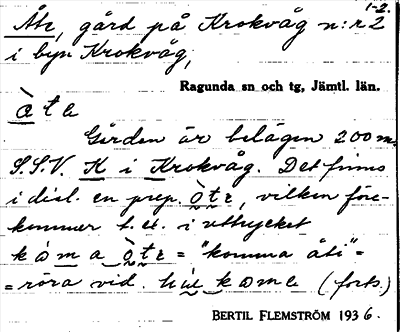 1-2.
Åte, gård på Krokvåg n:r 2
i byn Krokvåg,
Ragunda sn och tg, Jämtl. län.
ò t e
Gården är belägen 200 m.
S.S.V. K i Krokvåg. Det finns
i dial. en prep. òte, vilken före-
kommer t. ex. i uttrycket
kòma òte = "komma åt" =
= röra vid. kome (forts.)
BERTIL FLEMSTRÖM 1936.